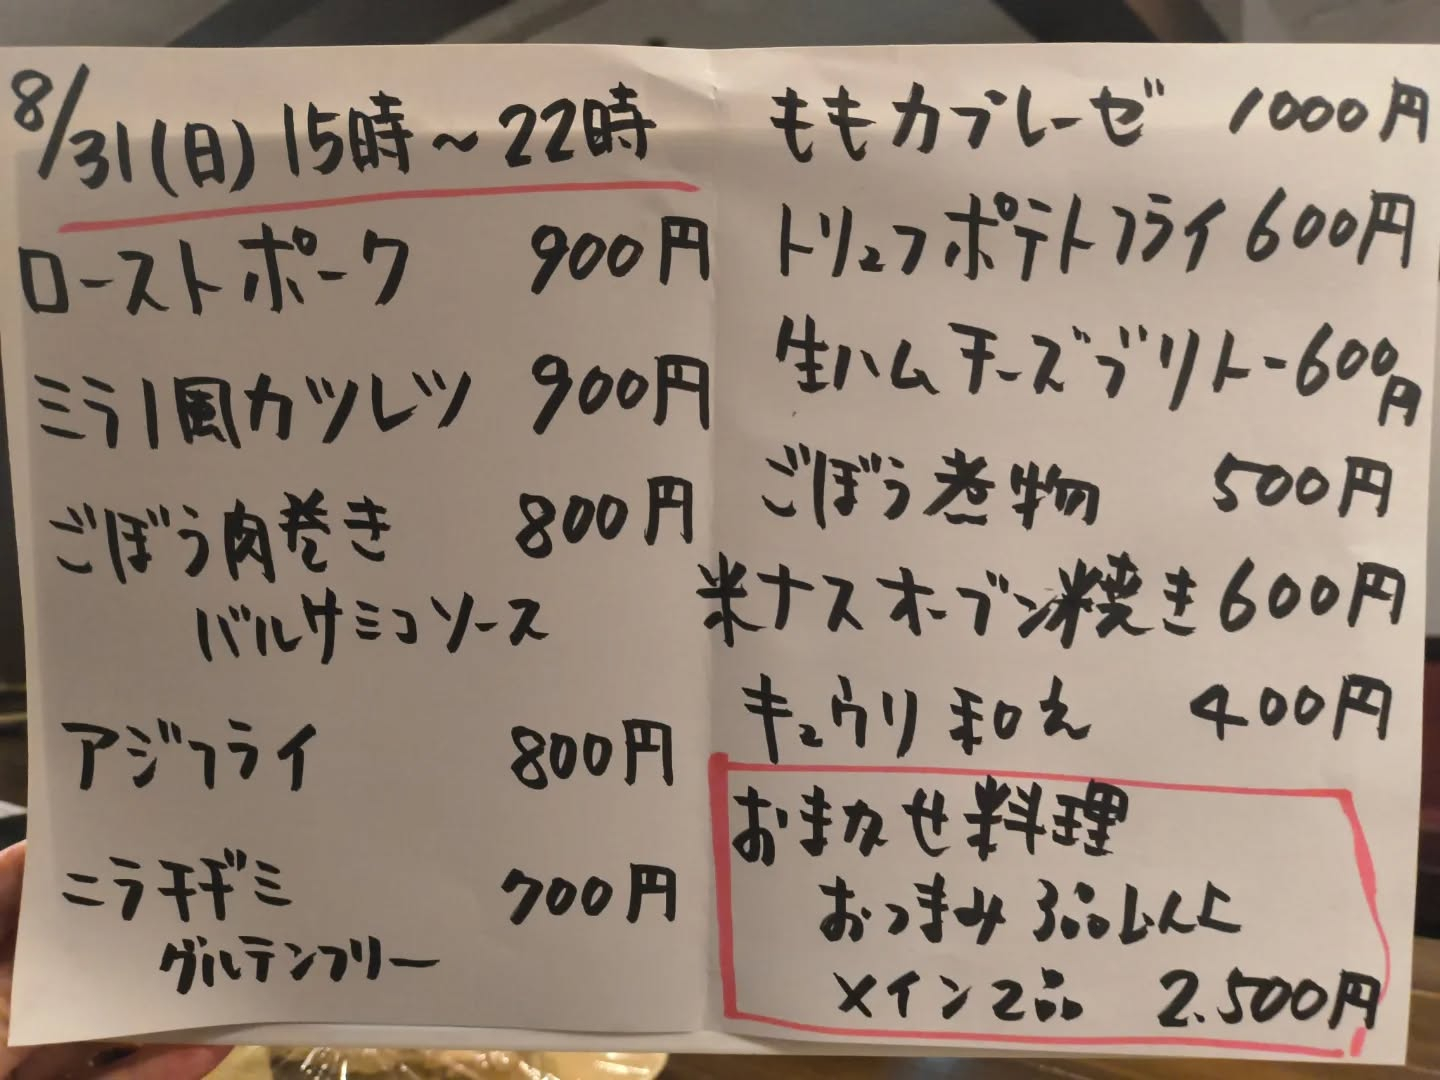 8/31(日) 15時～22時
ローストポーク 900円
ミラノ風カツレツ 900円
ごぼう肉巻き 800円
バルサミコソース
アジフライ 800円
ニラチヂミ 700円
グルテンフリー
ももカプレーゼ 1000円
トリュフポテトフライ 600円
生ハムチーズブリトー 600円
ごぼう煮物 500円
米ナスオーブン焼き 600円
キュウリ和え 400円
おまかせ料理
おつまみ3品以上
メイン2品 2.500円